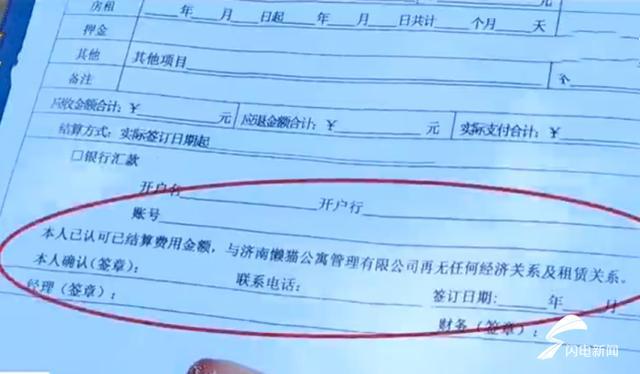 房租 ____年__月__日起__年__月__日共计__个月__天
押金
其他 其他项目 个
备注
应收金额合计：￥____元 应退金额合计：￥____元 实际支付合计：￥
结算方式：实际签订日期起
□银行汇款
开户名____开户行____
账号____
本人已认可已结算费用金额，与济南懒猫公寓管理有限公司再无任何经济关系及租赁关系。
本人确认(签章)： 联系电话： 签订日期：__年__月
经理(签章)： 财务(签章)：
闪电新闻